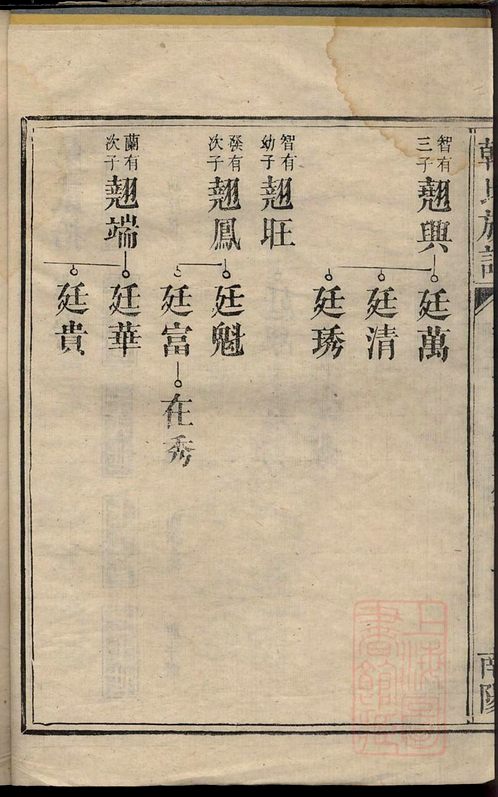 韓氏族譜
智有三子
翹興
廷萬
廷清
廷琇
智有幼子
翹旺
發有次子
翹鳳
廷魁
廷富
在秀
蘭有次子
翹端
廷華
廷貴
南陽